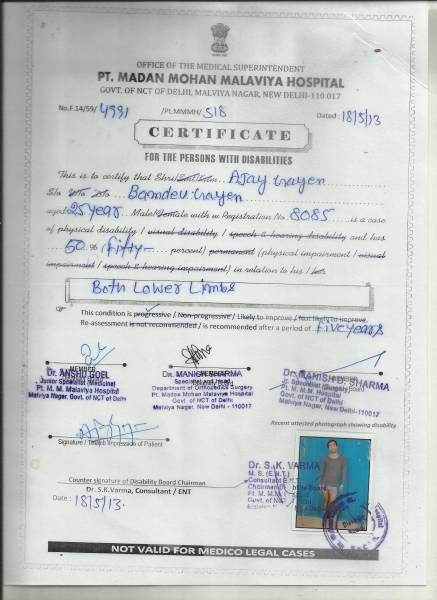 OFFICE OF THE MEDICAL SUPERINTENDENT
PT. MADAN MOHAN MALAVIYA HOSPITAL
GOVT. OF NCT OF DELHI, MALVIYA NAGAR, NEW DELHI-110 017
No.F.14/59/ 4991 /Pt.MMMH/ 518 Dated : 18/5/13
CERTIFICATE
FOR THE PERSONS WITH DISABILITIES
This is to certify that Shri/Smt/Kum. Ajay
S/o W/o D/o
aged 25 year Male/Female with Registration No. 8085 is a case
of physical disability / visual disability / speech & hearing disability and has
50 % (Fifty- percent) permanent (physical impairment / visual
impairment / speech & hearing impairment) in relation to his / her
Both Lower Limbs
This condition is progressive / Non-progressive / Likely to improve / Not likely to improve.
Re-assessment is not recommended / is recommended after a period of five years
MEMBER
Dr. ANSHU GOEL
Junior Specialist (Medicine)
Pt. M. M. Malaviya Hospital
Malviya Nagar, Govt. of NCT of Delhi
MEMBER
MANISH SHARMA
Specialist and Head
Department of Orthopaedics Surgery
Pt. Madan Mohan Malaviya Hospital
Govt. of NCT of Delhi
Malviya Nagar, New Delhi - 110017
MEMBER
Dr. MANISH D. SHARMA
Jr. Specialist (Surgery)
Govt. of NCT of Delhi
Malviya Nagar, New Delhi-110017
Signature / Thumb Impression of Patient
Recent attested photograph showing disability
Counter signature of Disability Board Chairman
Dr. S.K. Varma, Consultant / ENT
Date : 18/5/13.
Dr. S. K. VARMA
M. S. (E.N.T.)
Consultant E.N.T.
NOT VALID FOR MEDICO LEGAL CASES